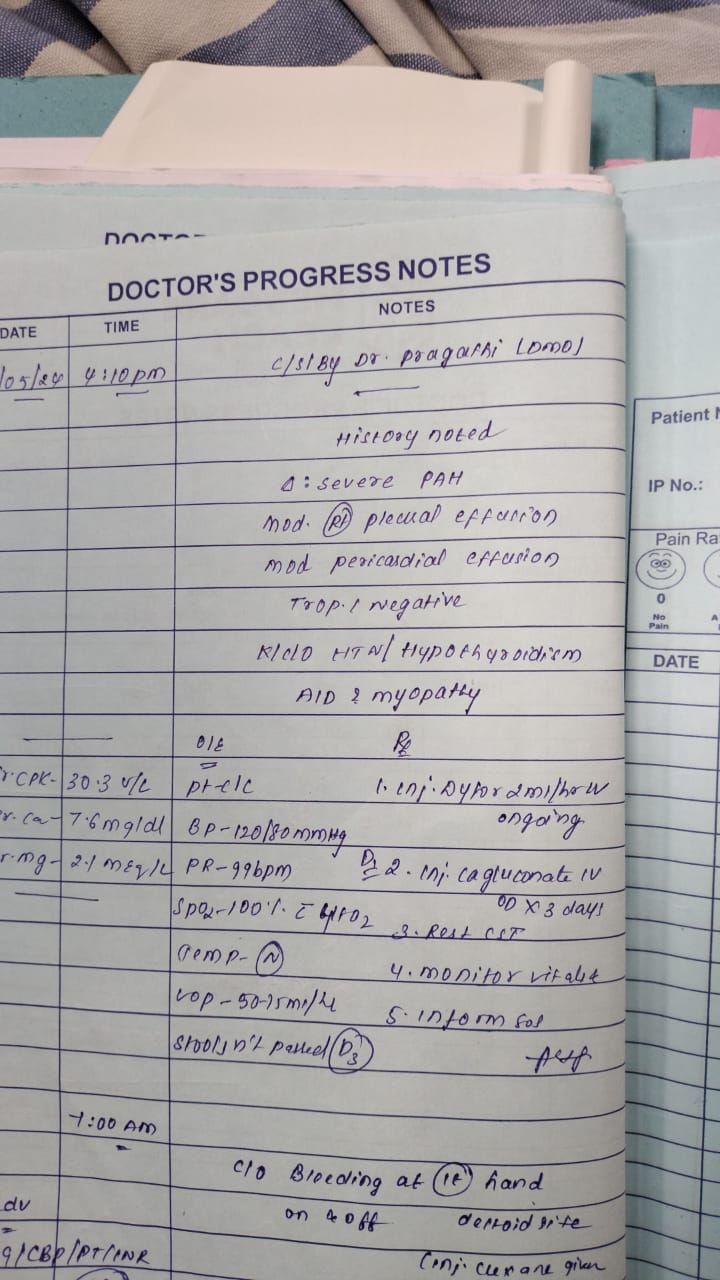 DOCTOR'S PROGRESS NOTES
DATE TIME NOTES
/05/24 4:10pm C/S/By Dr. Pragathi (DMO)
History noted
Δ: severe PAH
mod. (Rt) pleural effusion
mod pericardial effusion
Trop.I negative
K/C/O HTN/ Hypothyroidism
AID & myopathy
O/E Rx
CPK- 30.3 U/L pt-c/c 1. Inj. Dytor 2ml/hr IV
ongoing
Ca- 7.6 mg/dl BP-120/80mmHg
mg- 2.1 mEq/L PR-99bpm D1 2. Inj. ca gluconate IV
OD X 3 days
SpO2-100%. c̄ O2 3. Rest CST
Temp-(N) 4. monitor vitals
UOP-50-75ml/hr 5. inform SOS
Stools n't passed (D3)
1:00 AM
C/O Bleeding at (lt) hand
on & off deltoid site
adv
/CBP/PT/INR (inj. given
Patient
IP No.:
Pain Ra
0
No
Pain
DATE